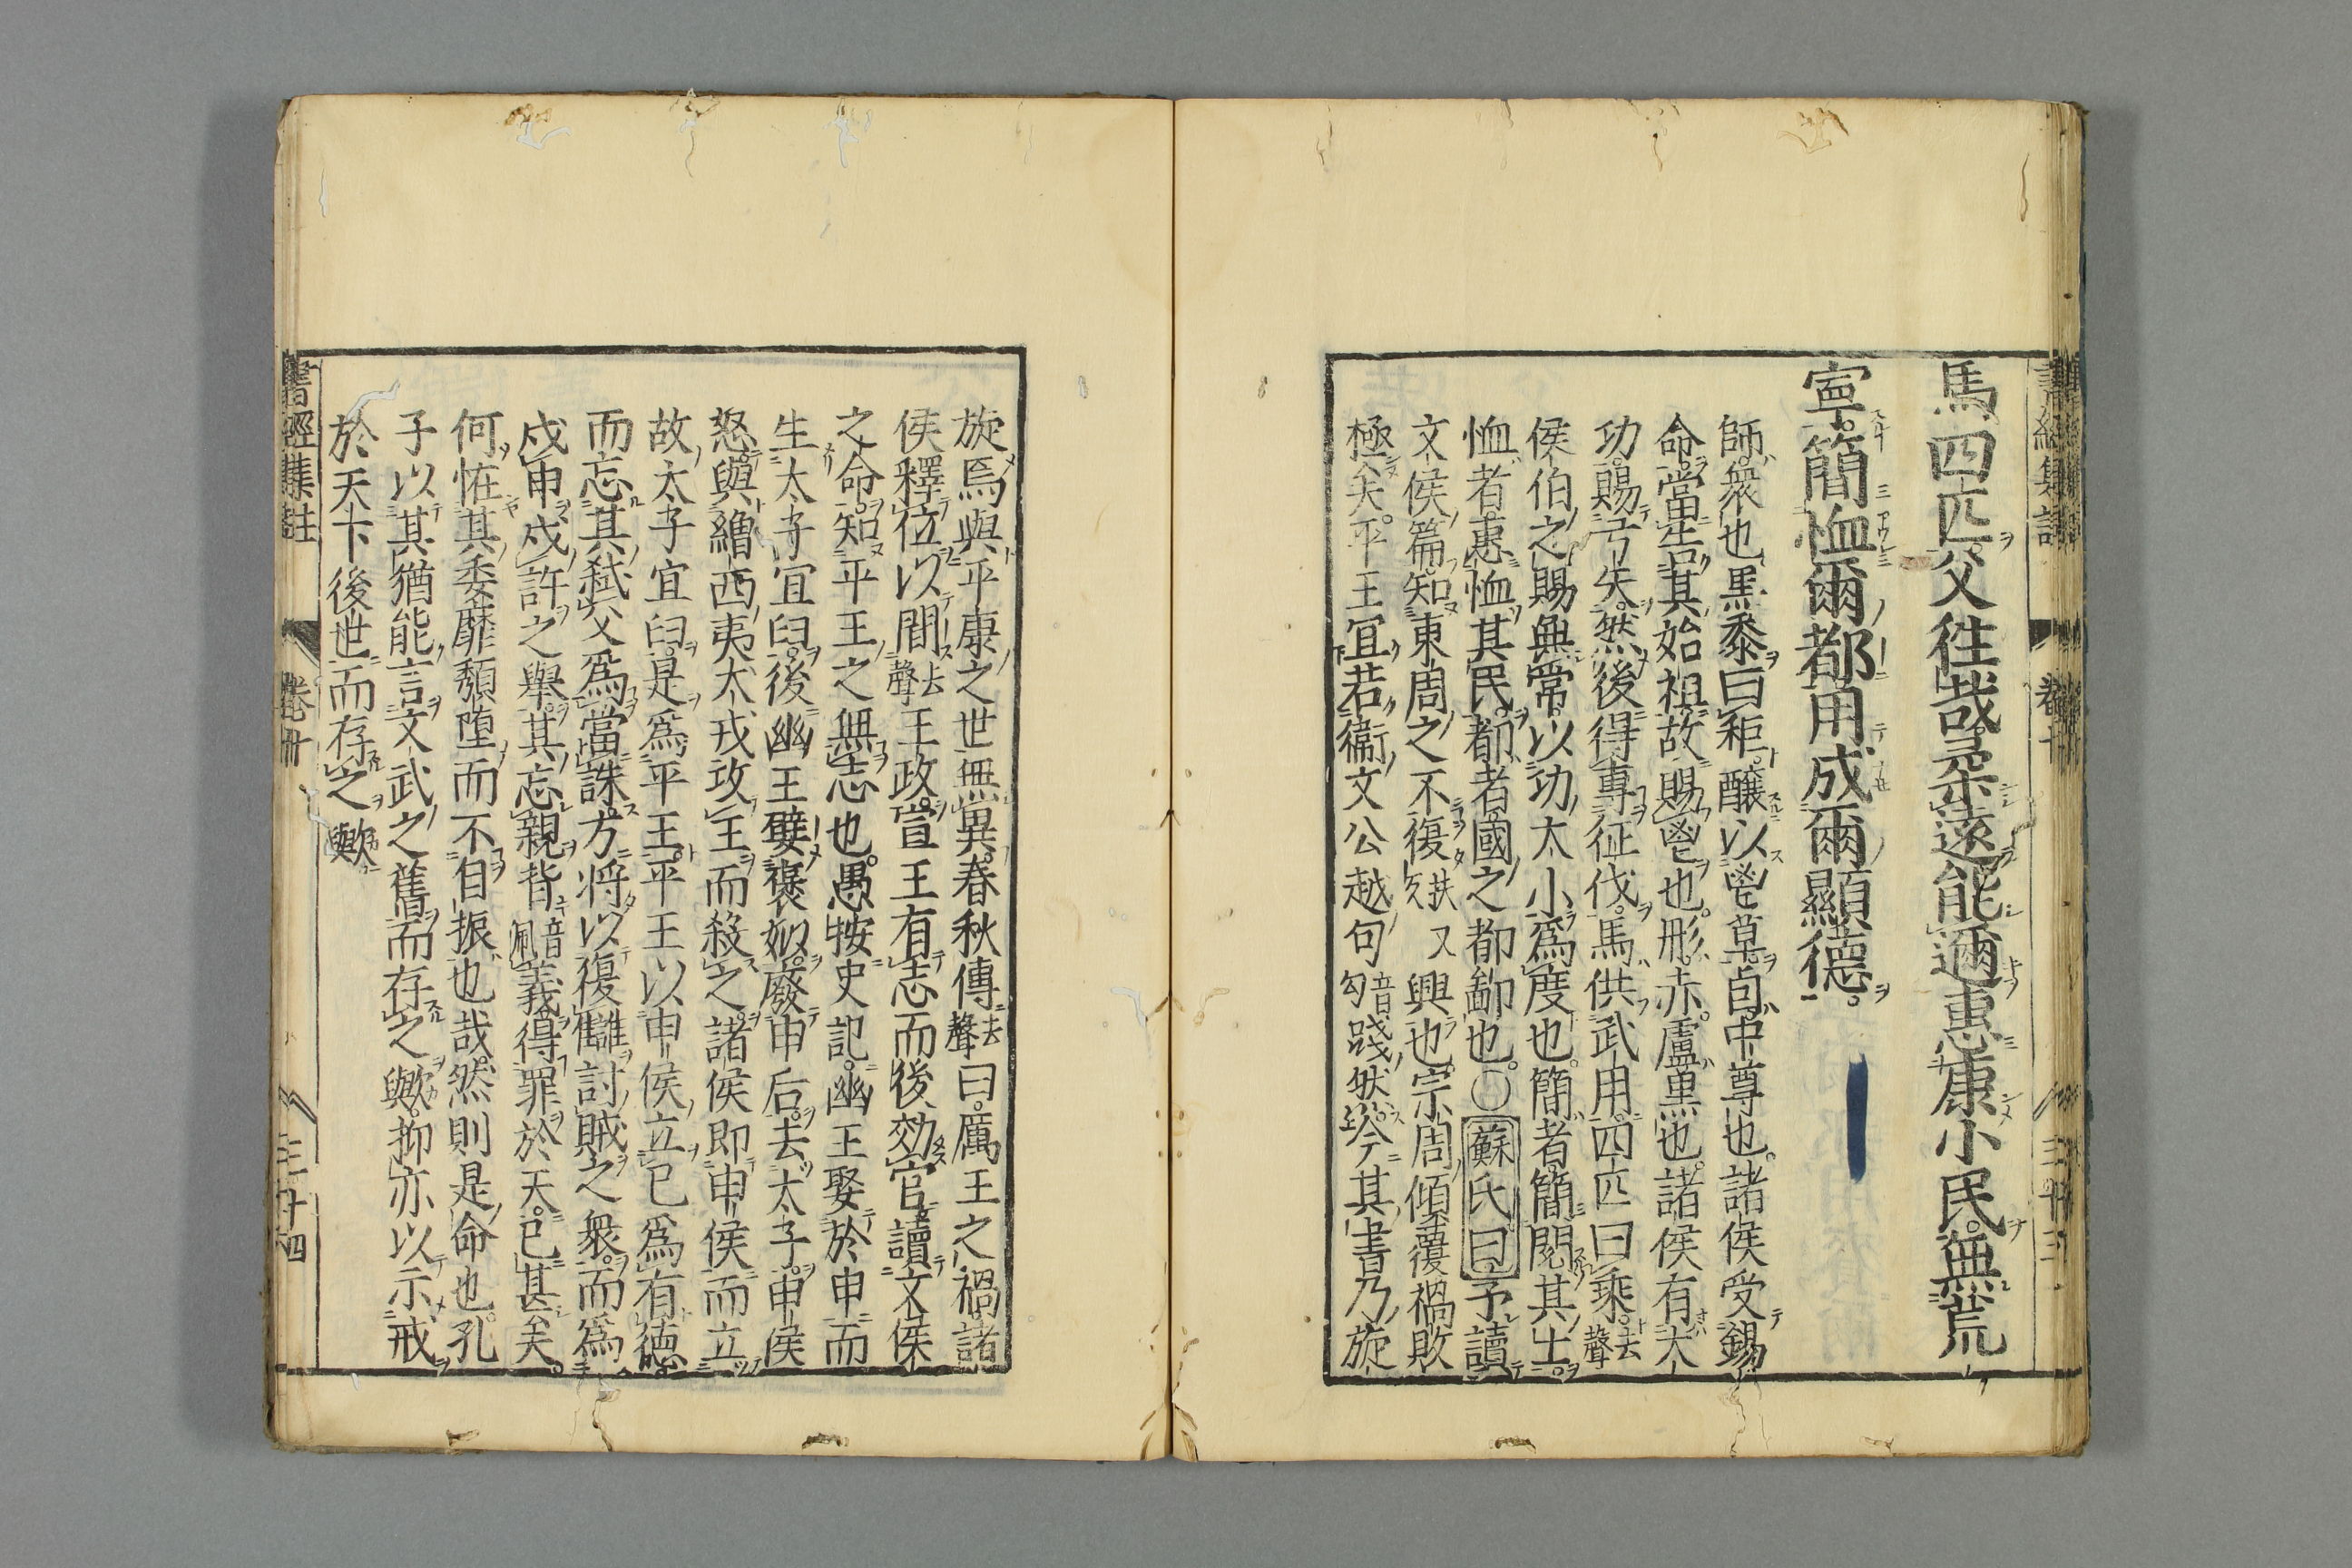 馬四匹父往哉柔遠能邇惠康小民無荒
寧簡恤爾都用成爾顯德
師衆也黒黍曰秬釀以鬯草卣中尊也諸侯受錫
命當告其始祖故賜鬯也彤赤盧黒也諸侯有大
功賜弓矢然後得專征伐馬供武用四匹曰乘去聲
侯伯之賜無常以功大小爲度也簡者簡閱其士
恤者惠恤其民都者國之都鄙也〇蘇氏曰予讀
文侯篇知東周之不復扶又興也宗周傾覆禍敗
極矣平王宜若衞文公越句音勾踐然今其書乃旋
旋焉與平康之世無異春秋傳去聲曰厲王之禍諸
侯釋位以間去聲王政宣王有志而後効官讀文侯
之命知平王之無志也愚按史記幽王娶於申而
生太子宜臼後幽王嬖褒姒廢申后去太子申侯
怒與繒西夷犬戎攻王而殺之諸侯即申侯而立
故太子宜臼是爲平王平王以申侯立已爲有德
而忘其弒父爲當誅方將以復讎討賊之衆而爲
戍申戍許之舉其忘親背音佩義得罪於天已甚矣
何怪其委靡頽堕而不自振也哉然則是命也孔
子以其猶能言文武之舊而存之歟抑亦以示戒
於天下後世而存之歟
書經集註
卷十
三十三
書經集註
卷十
三十四